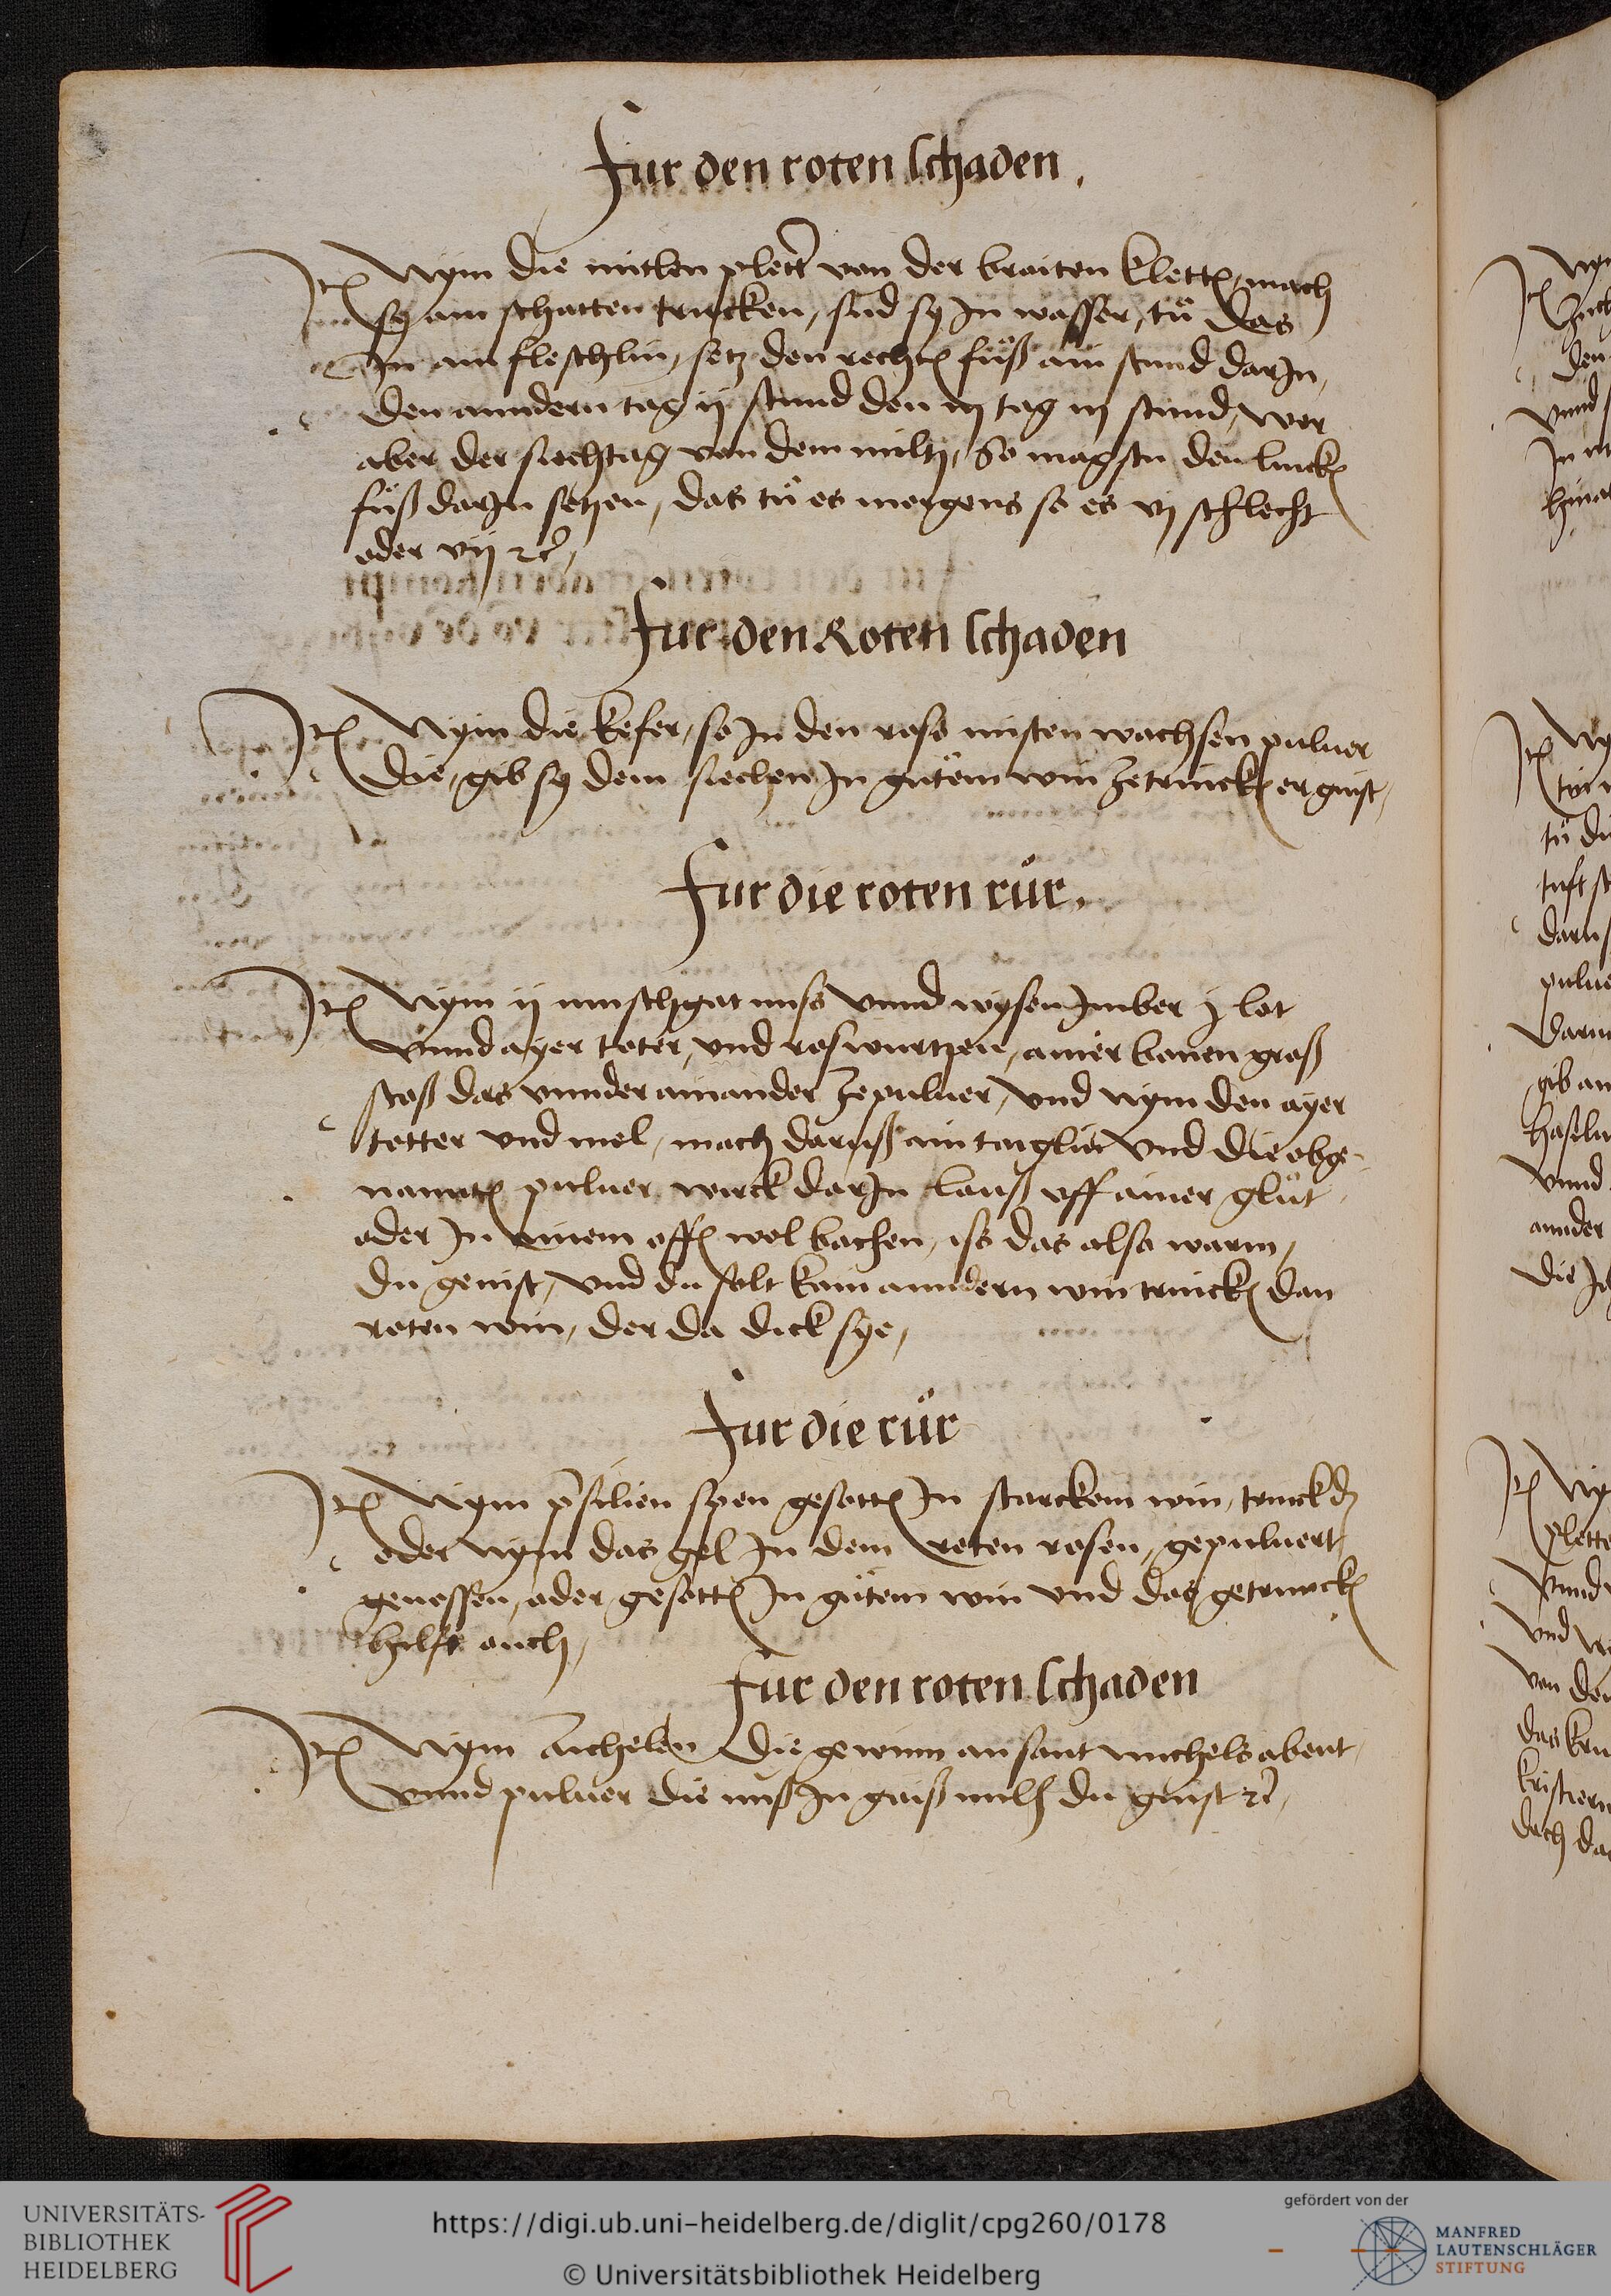 Fur den roten schaden.
Itē Nym die mitlen plettr̄ von der braiten klettē, mach
sy am schatten trucken, süd sy In wasser, tů das
In ain fleschlin, setz den rechtē fůß ain stund darIn,
den anndern tag ij stund den iij tag iij stund, wer
aber der siechtag von dem miltz, So magstu den linckē
fůß darIn setzen, das tů es morgens so es vj schlecht
oder vij ⁊c̄,
Fur den Roten schaden
Itē Nym die kefer, so In den ross misten wachsen puluer
die, gib sy dem siechen In gůtem win zetrinckē er gnist,
Fur die roten růr.
Itē Nym ij muschgat nuss vnnd wysen Imber j lot
vnnd ayer toter, vnd roswurtzen, ainer bonen groß
stoß das vnnder ainander zepuluer, vnd nym den ayer
totter vnd mel, mach daruß ain taiglin vnd die obge-
nantē puluer wirck darIn lauß vff ainer glůt
oder In ainem offē wol bachen, iss das also warm,
du genist, vnd du solt kain anndern win trinckē dan
roten win, der da dick sye,
Fur die růr
Itē Nym p̄silien spen gesottē In starckem win, trinck dz
oder nym das gel In dem roten rosen, gepuluert
genossen, oder gesottē In gůtem win vnd das getrunckē
hilft ouch,
Fur den roten schaden
Itē Nym Aichelen die gewinn an sant michels abent
vnnd puluer die nuß In gaiß milch du gnist ⁊c̄,
UNIVERSITÄTS-
BIBLIOTHEK
HEIDELBERG
https://digi.ub.uni-heidelberg.de/diglit/cpg260/0178
© Universitätsbibliothek Heidelberg
gefördert von der
MANFRED
LAUTENSCHLÄGER
STIFTUNG